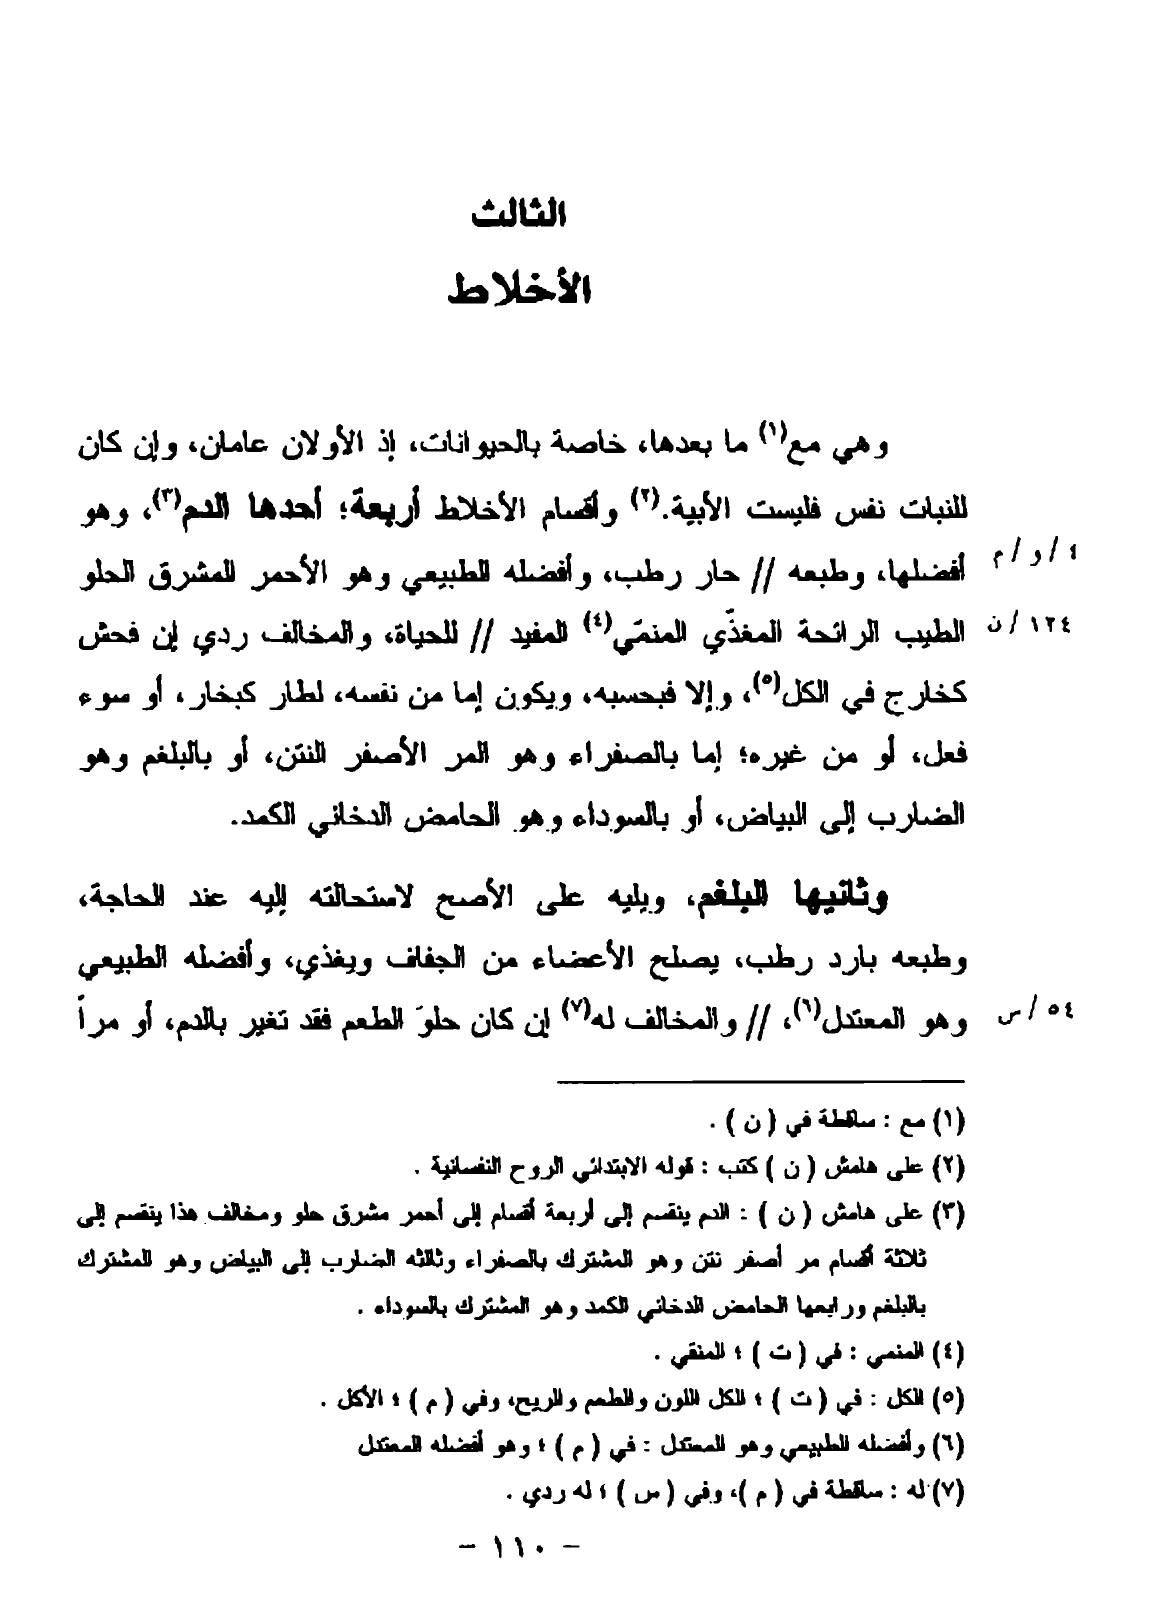 الثالث
الأخلاط
وهي مع(١) ما بعدها، خاصة بالحيوانات، إذ الأولان عامان، وإن كان
للنبات نفس فليست الأبية.(٢) وأقسام الأخلاط أربعة؛ أحدها الدم(٣)، وهو
أفضلها، وطبعه // حار رطب، وأفضله الطبيعي وهو الأحمر المشرق الحلو
٤ / و / م
الطيب الرائحة المغذّي المنمّي(٤) المفيد // للحياة، والمخالف ردي إن فحش
١٢٤ / ن
كخارج في الكل(٥)، وإلا فبحسبه، ويكون إما من نفسه، لطار كبخار، أو سوء
فعل، أو من غيره؛ إما بالصفراء وهو المر الأصفر النتن، أو بالبلغم وهو
الضارب إلى البياض، أو بالسوداء وهو الحامض الدخاني الكمد.
وثانيها البلغم، ويليه على الأصح لاستحالته إليه عند الحاجة،
وطبعه بارد رطب، يصلح الأعضاء من الجفاف ويغذي، وأفضله الطبيعي
وهو المعتدل(٦)، // والمخالف له(٧) إن كان حلوَ الطعم فقد تغير بالدم، أو مراً
٥٤ / س
(١) مع : ساقطة في ( ن ) .
(٢) على هامش ( ن ) كتب : قوله الابتدائي الروح النفسانية .
(٣) على هامش ( ن ) : الدم ينقسم إلى أربعة أقسام إلى أحمر مشرق حلو ومخالف هذا ينقسم إلى
ثلاثة أقسام مر أصفر نتن وهو المشترك بالصفراء وثالثه الضارب إلى البياض وهو المشترك
بالبلغم ورابعها الحامض الدخاني الكمد وهو المشترك بالسوداء .
(٤) المنمي : في ( ت ) ؛ المنقي .
(٥) الكل : في ( ت ) ؛ الكل اللون والطعم والريح، وفي ( م ) ؛ الأكل .
(٦) وأفضله الطبيعي وهو المعتدل : في ( م ) ؛ وهو أفضله المعتدل
(٧) له : ساقطة في ( م )، وفي ( س ) ؛ له ردي .
- ١١٠ -